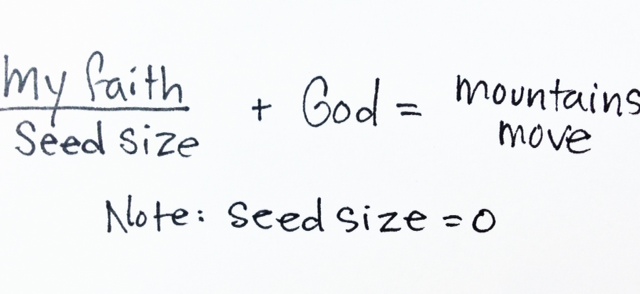 my faith
seed size
+ God =
mountains
move
Note: seed size = 0